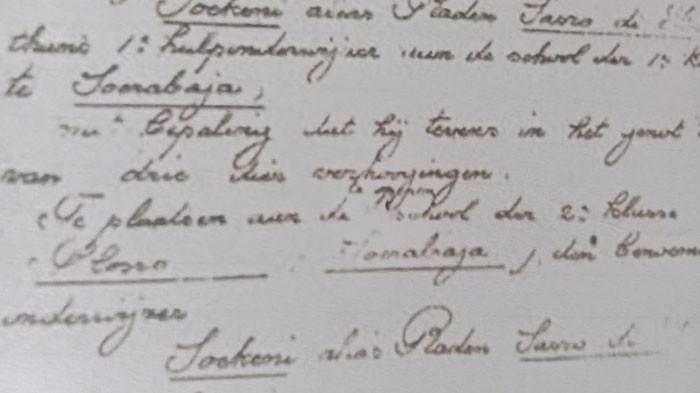 Soekeni alias Raden Sosro di
thans 1: hulponderwijzer aan de school der 1: k
te Soerabaja,
met bepaling dat hij tevens in het genot
van drie dier verhoogingen.
Te plaatsen aan de school der 2: klasse
Ploso Soerabaja, den
onderwijzer
Soekeni alias Raden Sosro di